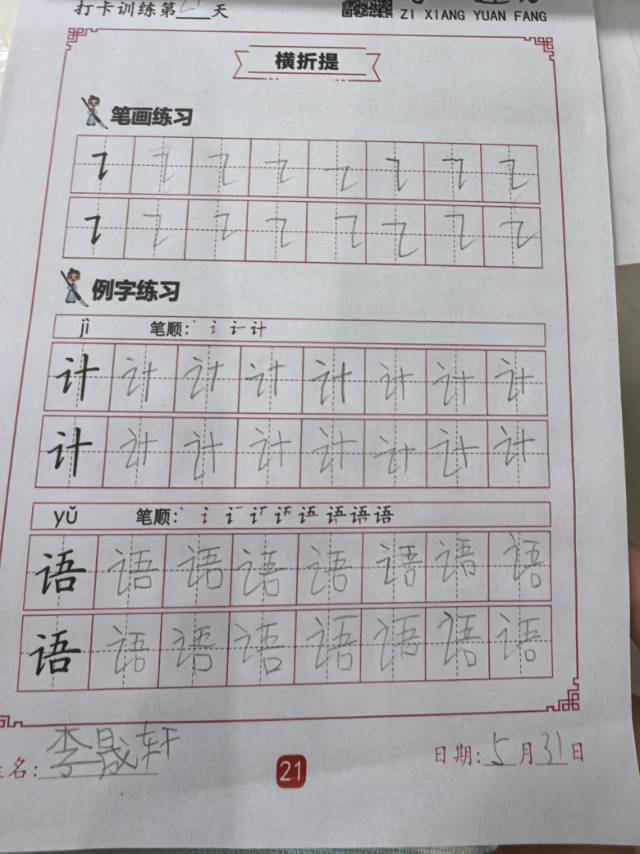 打卡训练第21天
ZI XIANG YUAN FANG
横折提
笔画练习
例字练习
jì 笔顺: 计
计 计 计 计 计 计 计 计
计 计 计 计 计 计 计 计
yǔ 笔顺: 语
语 语 语 语 语 语 语 语
语 语 语 语 语 语 语 语
名: 李晟轩
21
日期: 5月31日